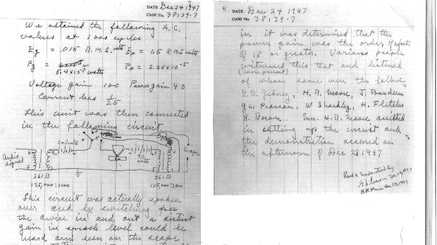 DATE Dec 24 1947
CASE No. 38139-7
We attained the following A.C.
values at 1000 cycles
Eg = .015 R.M.S. volts Ep = 1.5 R.M.S. volts
Pg = 5.4 x 10⁻⁷ watts Pp = 2.25 x 10⁻⁵
Voltage gain 100 Power gain 40
Current loss 1/2.5
This unit was then connected
in the following circuit.
261 B 261 B
125,000 : 1000 125,000 : 1000
This circuit was actually spoken
over and by switching the
device in and out a distinct
gain in speech level could be
heard and seen on the scope
DATE Dec 24 1947
CASE No. 38139-7
it was determined that the
power gain was the order of
18 or greater. Various people
witnessed this test and listened
of whom some were the following
R.B. Gibney, H.R. Moore, J. Bardeen
G.L. Pearson, W. Shockley, H. Fletcher
R. Bown. Mr. H.R. Moore assisted
in setting up the circuit and
the demonstration occurred on
the afternoon of Dec 23 1947
Read & understood by